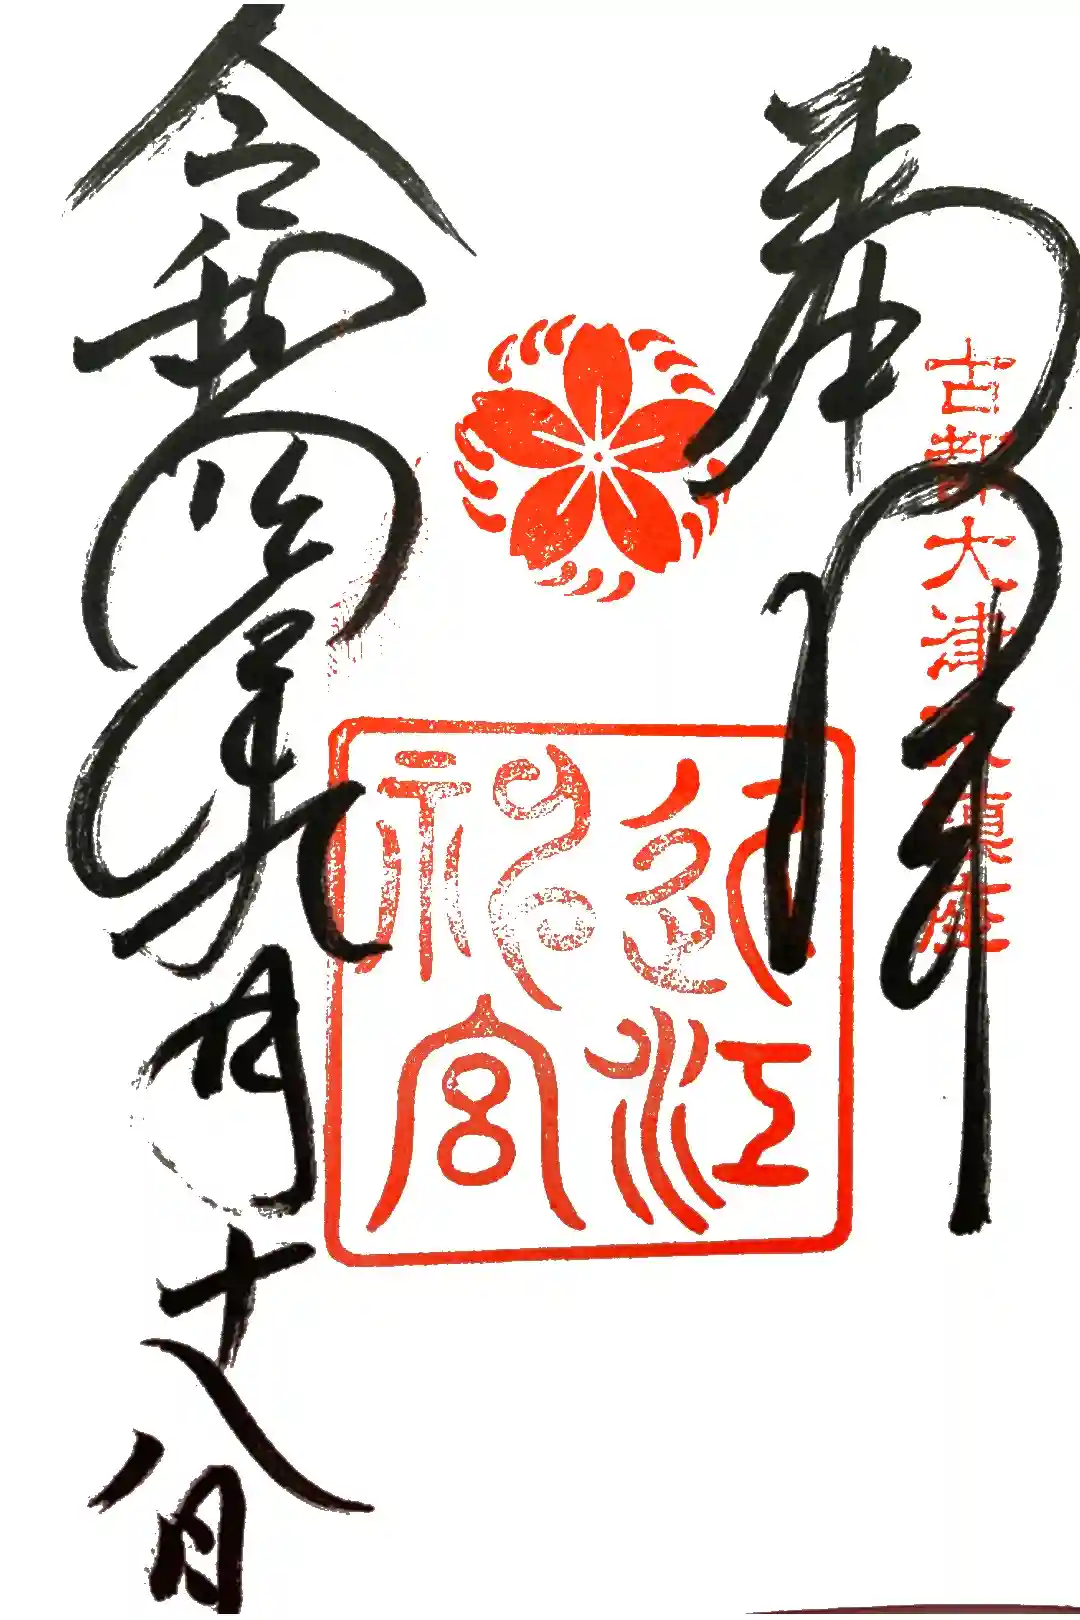 奉拝
古都大津京鎮座
近江神宮
令和四年九月十八日